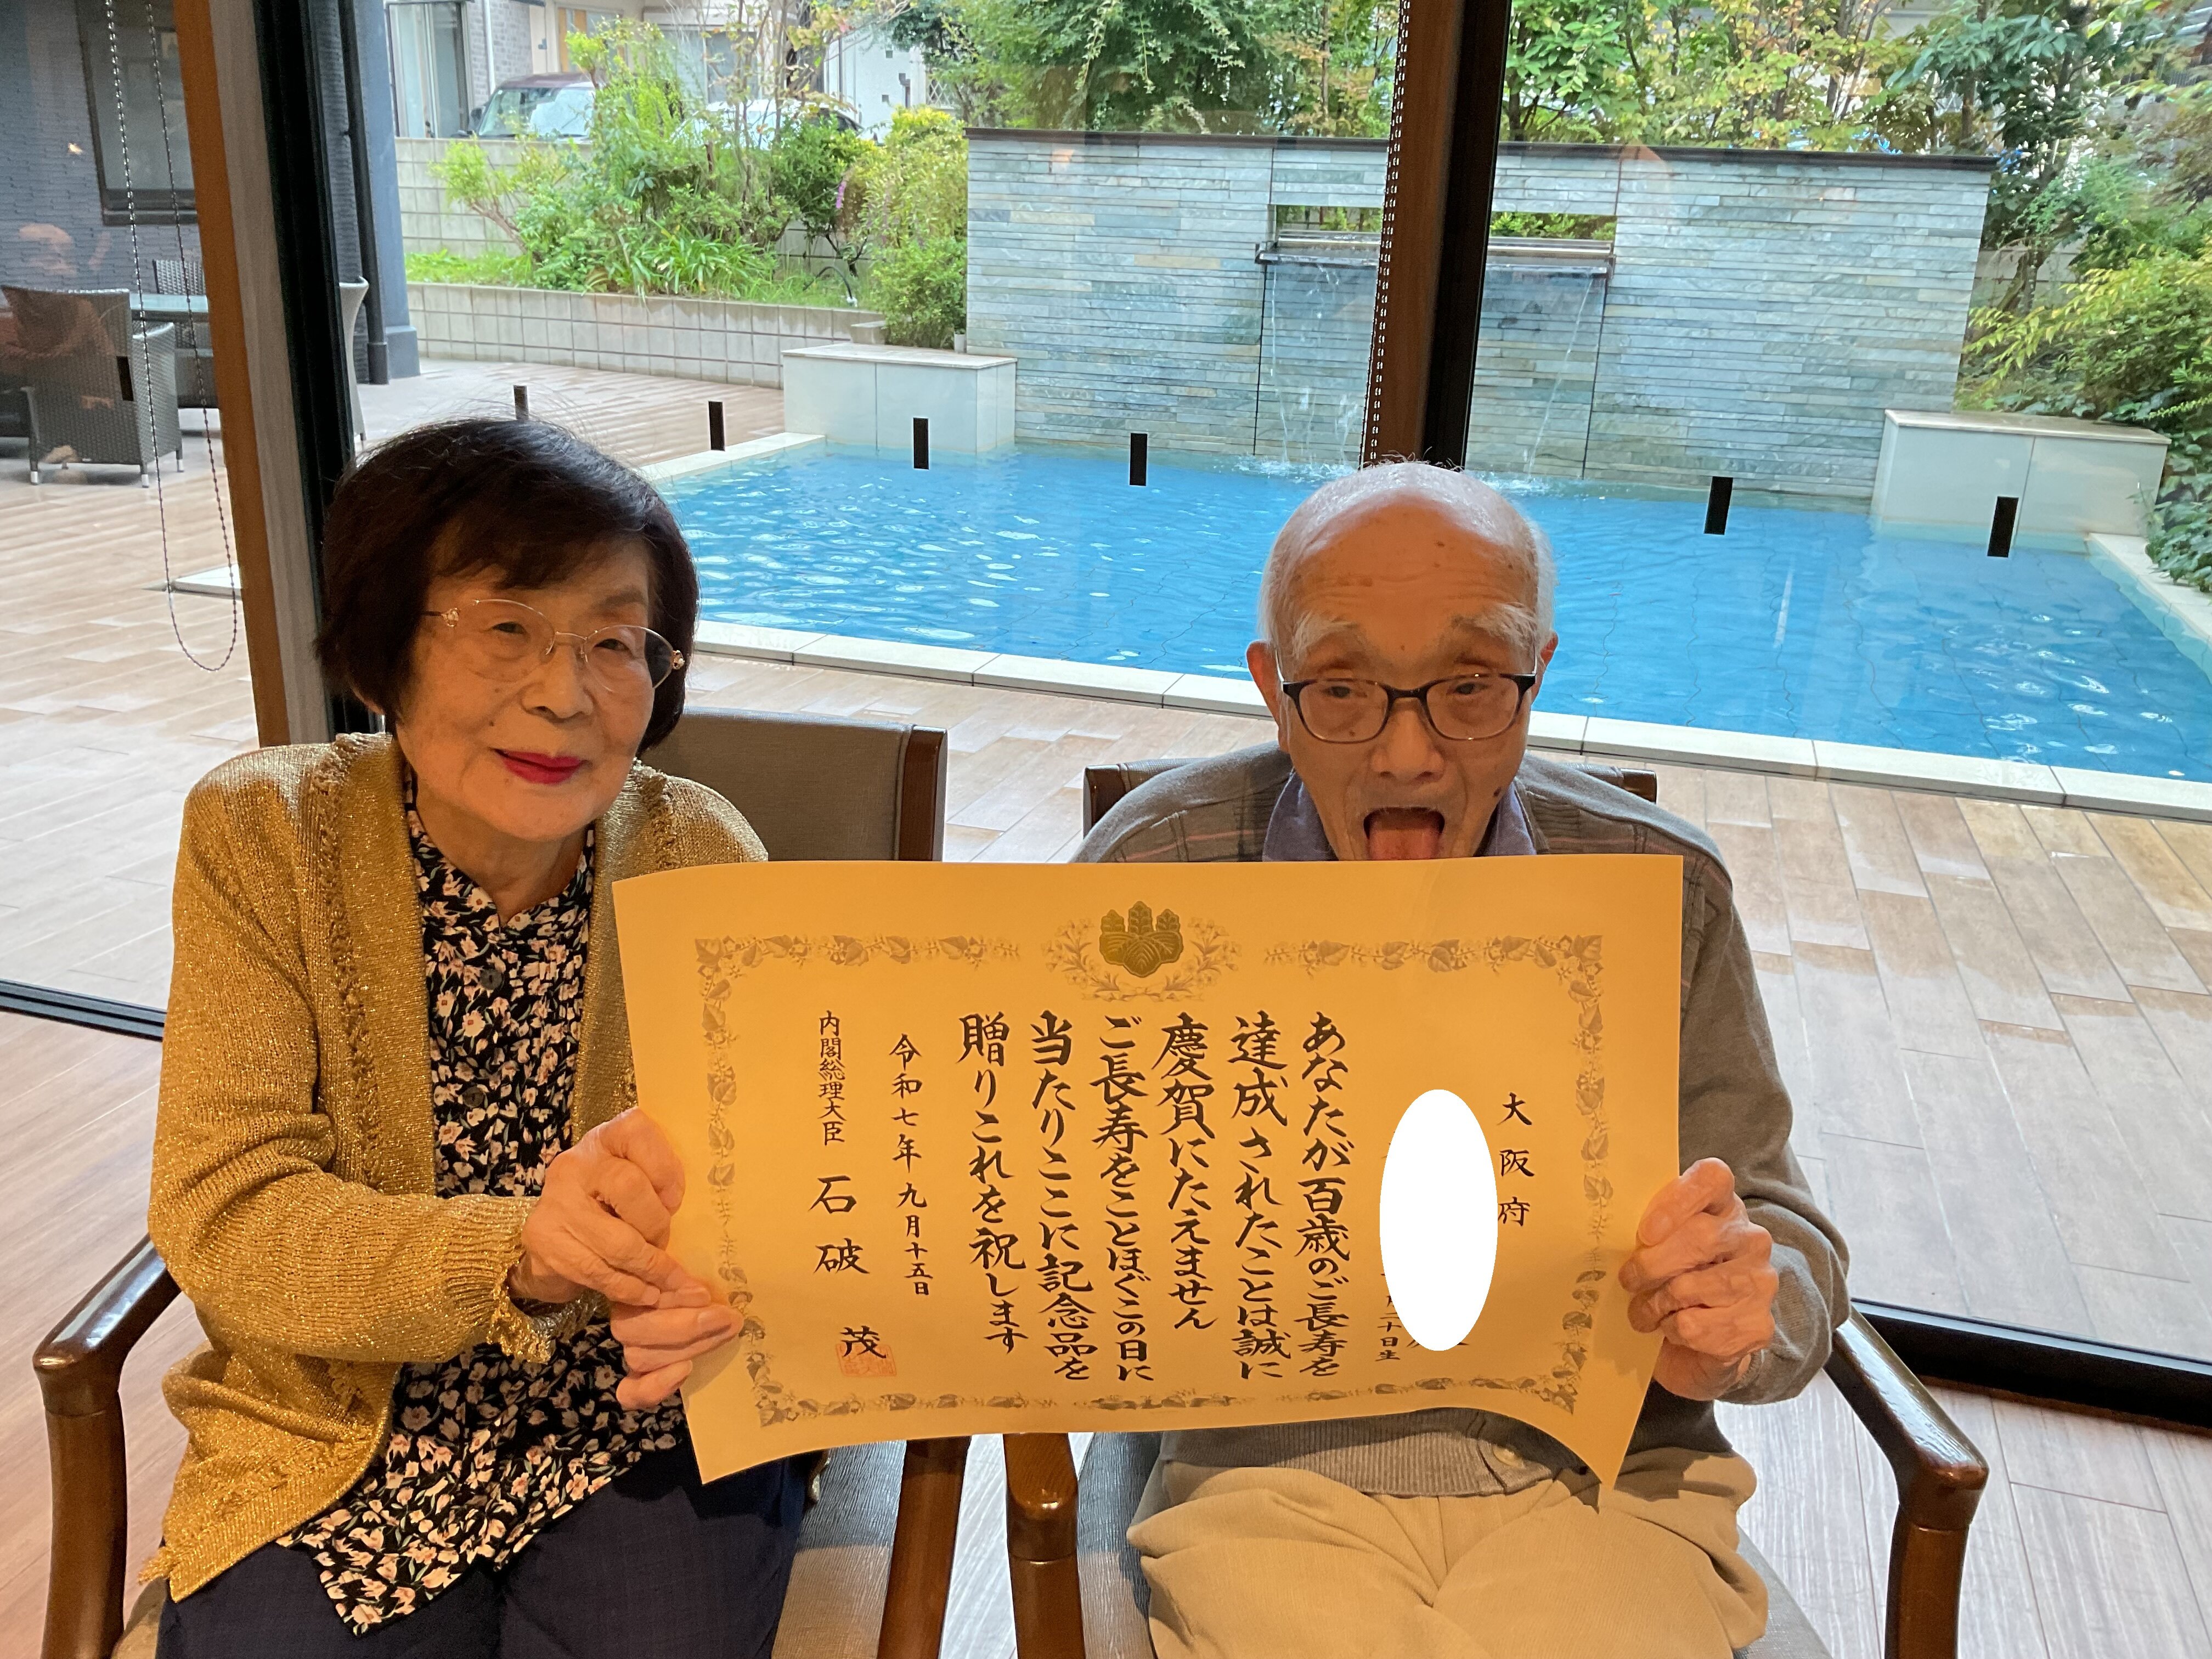 大阪府
月二十日生
あなたが百歳のご長寿を
達成されたことは誠に
慶賀にたえません
ご長寿をことほぐこの日に
当たりここに記念品を
贈りこれを祝します
令和七年九月十五日
内閣総理大臣 石破 茂